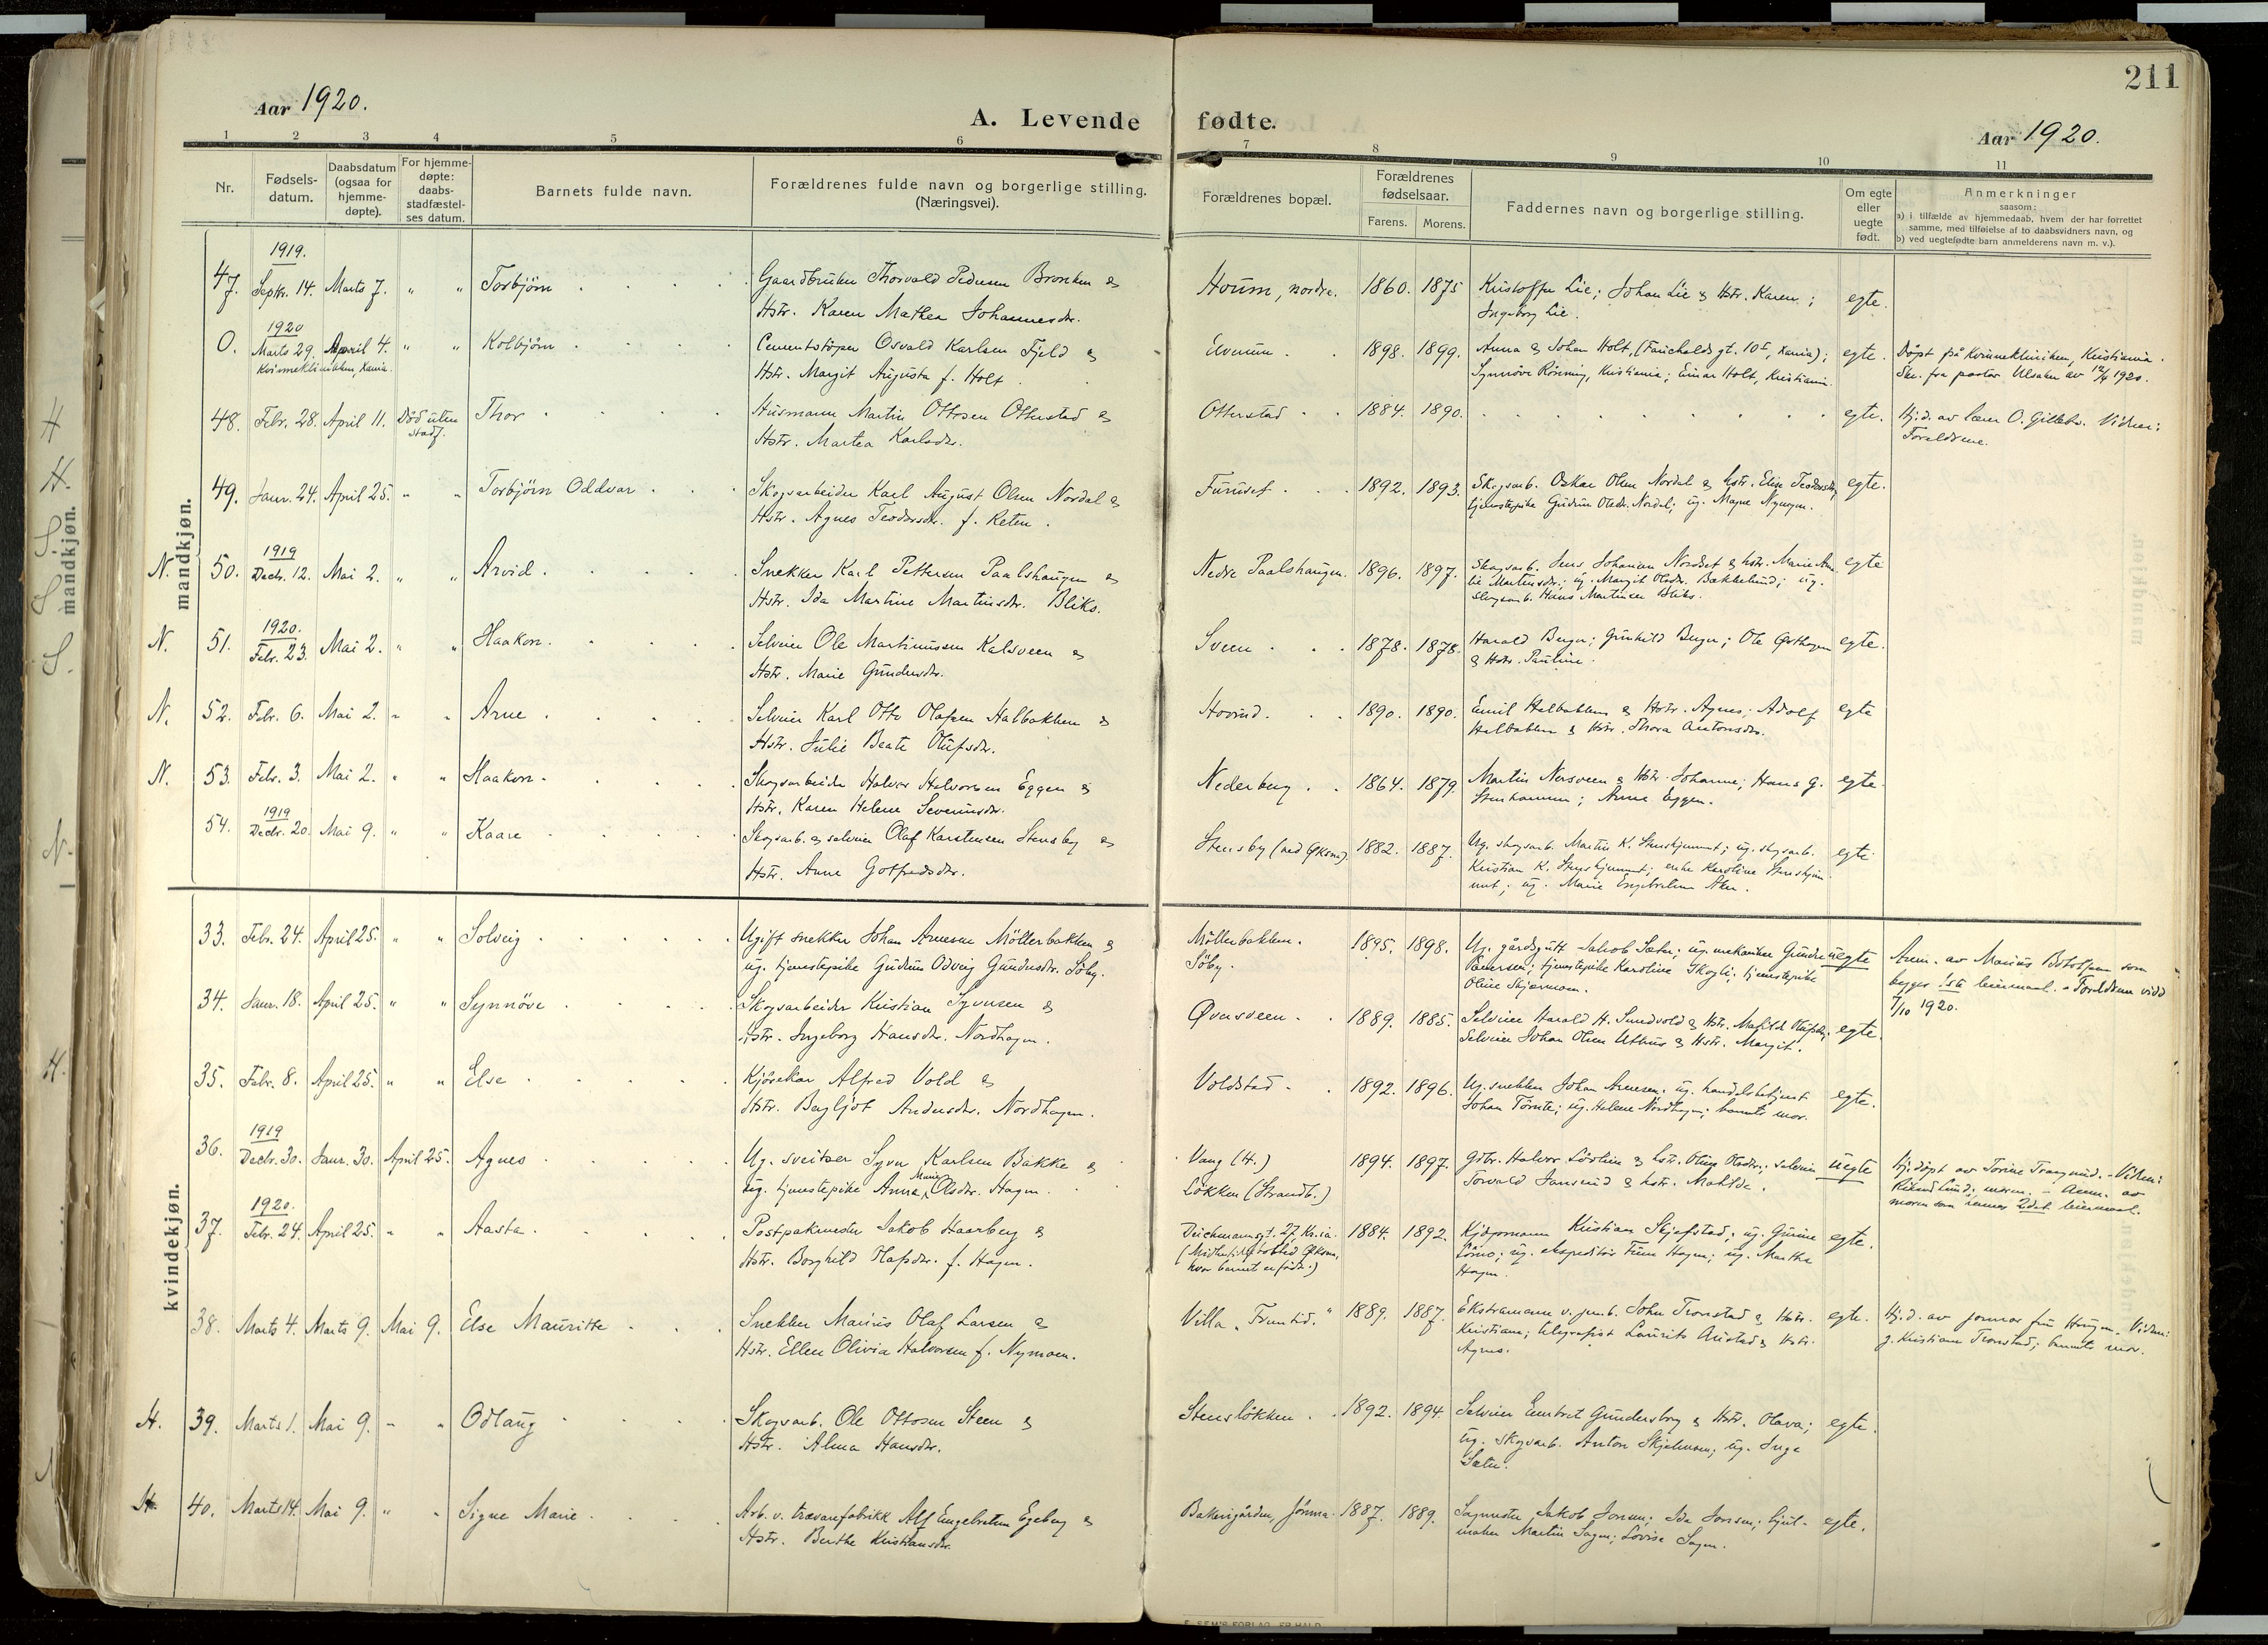 211
Aar 1920.
A. Levende fødte.
Aar 1920.
1 2 3 4 5 6 7 8 9 10 11
Nr.
Fødsels-
datum.
Daabsdatum
(ogsaa for
hjemme-
døpte).
For hjemme-
døpte:
daabs-
stadfæstel-
ses datum.
Barnets fulde navn.
Forældrenes fulde navn og borgerlige stilling.
(Næringsvei).
Forældrenes bopæl.
Forældrenes
fødselsaar.
Farens. Morens.
Faddernes navn og borgerlige stilling.
Om egte
eller
uegte
født.
Anmerkninger
saasom:
a) i tilfælde av hjemmedaab, hvem der har forrettet
samme, med tilføielse af to daabsvidners navn, og
b) ved uegtefødte barn anmelderens navn m. v.).
mandkjøn.
1919.
47. Septr. 14. Marts 7. " " Torbjörn Gaardbruker Thorvald Pedersen Bronken & Houm, nordre. 1860. 1875 Kristoffer Lie; Johan Lie & Hstr. Karen; egte.
Hstr. Karen Mathea Johannesdr. Ingeborg Lie.
1920
0. Marts 29. April 4. " " Kolbjörn Cementstöper Osvald Karlsen Fjeld & Elverum 1898. 1899. Anna & Johan Holt, (Fauchaldsgt. 10 I, Kania); egte. Döpt på Kvinneklinikken, Kristiania.
Kvinneklinikken, Kania. Hstr. Margit Augusta f. Holt. Synnöve Rönning, Kristiania; Einar Holt, Kristiania. Ske. fra pastor Ulsaker av 12/4 1920.
48. Febr. 28. April 11. Död uten stadf. Thor Husmann Martin Ottosen Otterstad & Otterstad 1884. 1890. egte. Hj.d. av lærer O. Gillebo. Vidner:
Hstr. Martea Karlsdr. Foreldrene.
49. Janr. 24. April 25. " " Torbjörn Oddvar Skogsarbeider Karl August Olsen Nordal & Furuset 1892. 1893. Skogsarb. Oskar Olsen Nordal & hstr. Elise Teodorsdr; egte.
Hstr. Agnes Teodorsdr. f. Reten. tjenestepike Gudrun Olsdr. Nordal; ug. Magne
1919
N. 50. Decbr. 12. Mai 2. " " Arvid Snekker Karl Pettersen Paalshaugen & Nedre Paalshaugen. 1896. 1897. Skogsarb. Jens Johansen Nordset & hstr. Marie egte
Hstr. Ida Martine Martinsdr. Bliks. Martinsdr.; ug. Margit Olsdr. Bækkelund; ug.
skogsarb. Hans Martinsen Bliks.
1920.
N. 51. Febr. 23. Mai 2. " " Haakon Selveier Ole Martinussen Kalsveen & Sveen 1878. 1878. Harald Berger; Gunhild Berger; Ole Østhagen egte.
Hstr. Marie Gundersdr. & Hstr. Pauline.
N. 52. Febr. 6. Mai 2. " " Arne Selveier Karl Otto Olafsen Halbakken & Hovind 1890. 1890. Emil Halbakken & Hstr. Agnes; Adolf egte
Hstr. Julie Beate Olufsdr. Halbakken & Hstr. Thora Antonsdr.
N. 53. Febr. 3. Mai 2. " " Haakon Skogsarbeider Halvor Halvorsen Eggen & Nederberg 1864. 1879. Martin Nersveen & Hstr. Johanne; Hans G. egte.
Hstr. Karen Helene Severinsdr. Stenhammer; Anna Eggen.
1919
54. Decbr. 20. Mai 9. " " Kaare Skogsarb. & selveier Olaf Karstensen Stensby & Stensby (ned Øksna). 1882. 1887. Ug. skogsarb. Martin K. ; ug. skogsarb. egte.
Hstr. Anne Golfredsdr. Kristian K. ; enke Karoline
; ug. Marie Engebretsen Aker.
kvindekjøn.
33. Febr. 24. April 25. " " Solveig Ugift snekker Johan Arnesen Möllerbakken & Möllerbakken. 1895. 1898. Ug. gårdsgutt Jakob Sæter; ug. mekaniker Gunder uegte Anm. av Marius Botolfsen som
ug. tjenestepike Gudrun Odveig Gundersdr. Söby. Söby. Pedersen; tjenestepike Karoline Skogli; tjenestepike begges 1ste leiermaal. Foreldrene viet
Oline 7/10 1920.
34. Janr. 18. April 25. " " Synnöve Skogsarbeider Kristian Syversen & Øversveen 1889. 1885. Selveier Harald H. Sundvold & Hstr. Matilde Olufsdr; egte.
Hstr. Ingeborg Hansdr. Nordhagen. Selveier Johan Olsen Uthus & Hstr. Margit.
35. Febr. 8. April 25. " " Else Kjörekar Alfred Vold & Voldstad 1892. 1896. Ug. snekker Johan Arnesen; ug. handelsbetjent egte.
Hstr. Bergljot Andersdr. Nordhagen. Johan Törnte; ug. Helene Nordhagen; barnets mor.
1919
36. Decbr. 30. Janr. 30. April 25. Agnes Ug. sveitser Syver Karlsen Bakke & Vang (H.) 1894. 1897. Gdbr. Halvor Lövlien & hstr. Oline Olsdr.; selveier uegte Hj.döpt av Torine Trangerud. Vidner:
ug. tjenestepike Anna Marie Olsdr. Hagen. Lökken (Strandb.) Torvald Jansrud & hstr. Matilde. Rikard Lund; moren. Anm. av
moren som hennes 2det leiermaal.
1920.
37. Febr. 24. April 25. " " Aasta Postpakmester Jakob Haarberg & Deichmansgt. 27 Kr.ia. 1884. 1892. Kjöpmann Kristian Skjefstad; ug. Gurine egte.
Hstr. Borghild Olafsdr. f. Hagen. (Midlertidig bosted Øksna, Lörno; ug. ekspeditör Finn Hagen; ug. Martha
hvor barnet er född.) Hagen.
38. Marts 4. Marts 9. Mai 9. Else Mauritte Snekker Marius Olaf Larsen & Villa "Fremtid." 1889. 1887. Ekstramann v. jernb. John Tronstad & Hstr. egte. Hj.d. av jormor fru Haugen. Vidner:
Hstr. Ellen Olivia Halvorsen f. Nymoen. Kristiane; telegrafist Laurits Aristad & Hstr. g. Kristiane Tronstad; barnets mor.
Agnes.
H. 39. Marts 1. Mai 9. " " Odlaug Skogsarb. Ole Ottosen Steen & Stenslökken 1892. 1894. Selveier Embret Gundersborg & Hstr. Olava; egte.
Hstr. Alma Hansdr. ug. skogsarb. Anton Skjelnesen; ug. Inga
Sæter.
H. 40. Marts 14. Mai 9. " " Signe Marie Arb. v. trævarefabrikk Alf Engebretsen Egeberg & Bakerigården, Jömna 1887. 1889. Sagmester Jakob Jonsen; Ida Jonsen; hjul- egte.
Hstr. Berthe Kristiansdr. maker Martin Sagen; Lovise Sagen.